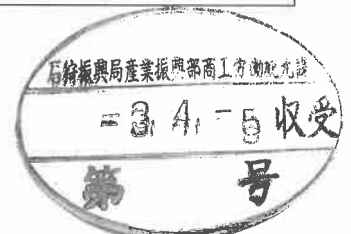 石狩振興局産業振興部商工労働観光課
-3.4.-5 収受
第 号